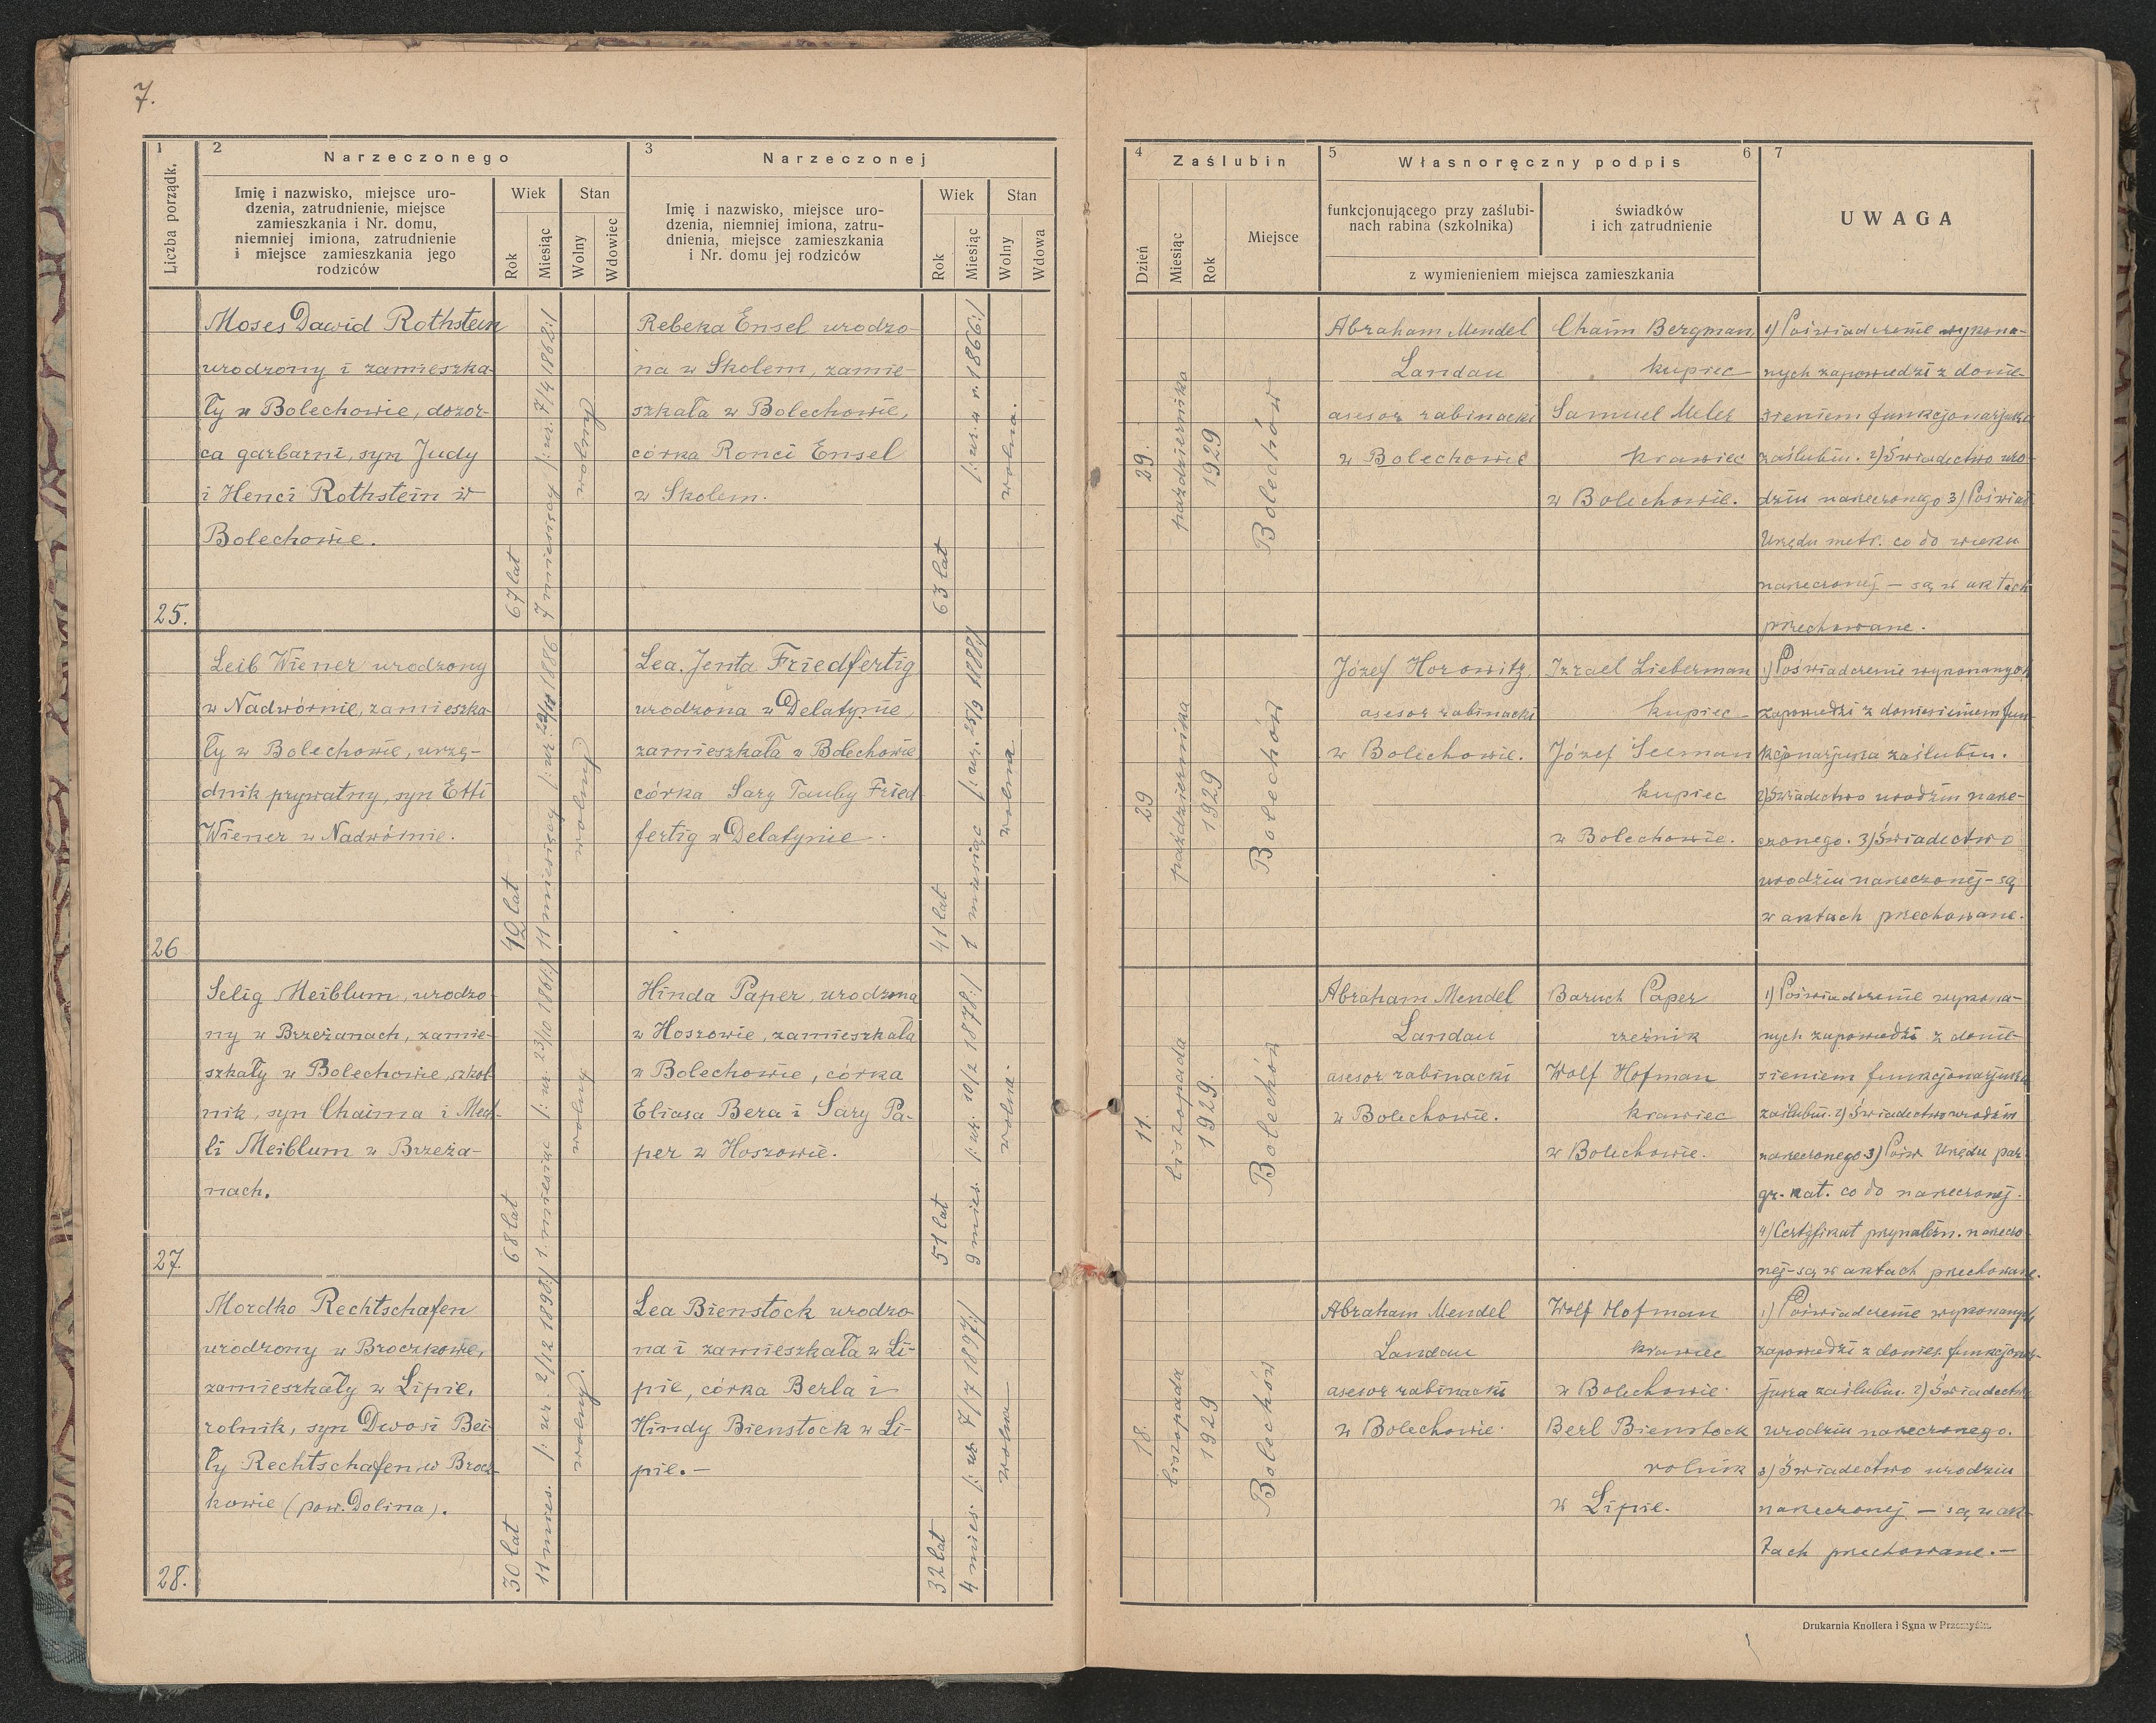 7.
1
2
Narzeczonego
3
Narzeczonej
Liczba porządk.
Imię i nazwisko, miejsce uro-
dzenia, zatrudnienie, miejsce
zamieszkania i Nr. domu,
niemniej imiona, zatrudnienie
i miejsce zamieszkania jego
rodziców
Wiek
Stan
Rok
Miesiąc
Wolny
Wdowiec
Imię i nazwisko, miejsce uro-
dzenia, niemniej imiona, zatru-
dnienia, miejsce zamieszkania
i Nr. domu jej rodziców
Wiek
Stan
Rok
Miesiąc
Wolny
Wdowa
4
Zaślubin
5
Własnoręczny podpis
6
7
Dzień
Miesiąc
Rok
Miejsce
funkcjonującego przy zaślubi-
nach rabina (szkolnika)
świadków
i ich zatrudnienie
z wymienieniem miejsca zamieszkania
UWAGA
25.
Moses Dawid Rothstein
urodzony i zamieszka-
ły w Bolechowie, dozor-
ca garbarni, syn Judy
i Henci Rothstein w
Bolechowie.
67 lat
7 miesięcy /: ur. 7/4 1862:/
wolny
Rebeka Ensel urodzo-
na w Skolem, zamie-
szkała w Bolechowie,
córka Ronci Ensel
w Skolem.
63 lat
/: ur. w r. 1866:/
wolna.
29.
października
1929
Bolechów
Abraham Mendel
Landau
asesor rabinacki
w Bolechowie
Chaim Bergman
kupiec
Samuel Meler
krawiec
w Bolechowie.
1) Poświadczenie wykona-
nych zapowiedzi z donie-
sieniem funkcjonarjusza
zaślubin. 2) Świadectwo uro-
dzin narzeczonego 3) Poświad.
Urzędu metr. co do wieku
narzeczonej – są w aktach
przechowane.
26
Leib Wiener urodzony
w Nadwórnie, zamieszka-
ły w Bolechowie, urzę-
dnik prywatny, syn Etti
Wiener w Nadwórnie.
42 lat
11 miesięcy /: ur. 1886
wolny
Lea Jenta Friedfertig
urodzona w Delatynie,
zamieszkała w Bolechowie
córka Sary Tauby Fried-
fertig w Delatynie.
41 lat
1 miesiąc /: ur. 25/9 1888/
wolna
29
października
1929
Bolechów
Józef Horowitz,
asesor rabinacki
w Bolechowie.
Izrael Lieberman
kupiec
Józef Seeman
kupiec
w Bolechowie.
1) Poświadczenie wykonanych
zapowiedzi z doniesieniem fun-
kcjonarjusza zaślubin.
2) Świadectwo urodzin narze-
czonego. 3) Świadectwo
urodzin narzeczonej – są
w aktach przechowane.
27.
Selig Meiblum, urodzo-
ny w Brzeżanach, zamie-
szkały w Bolechowie, szkol-
nik, syn Chaima i Mech-
li Meiblum w Brzeża-
nach.
68 lat
1 miesiąc /: ur. 23/10 1861:/
wolny
Hinda Paper, urodzona
w Hoszowie, zamieszkała
w Bolechowie, córka
Eliasa Bera i Sary Pa-
per w Hoszowie.
51 lat
9 mies. /: ur. 10/2 1878:/
wolna.
11.
listopada
1929.
Bolechów
Abraham Mendel
Landau
asesor rabinacki
w Bolechowie.
Baruch Paper
rzeźnik
Wolf Hofman
krawiec
w Bolechowie.
1) Poświadczenie wykona-
nych zapowiedzi z donie-
sieniem funkcjonarjusza
zaślubin. 2) Świadectwo urodzin
narzeczonego 3) Pośw. Urzędu par.
gr. kat. co do narzeczonej.
4) Certyfikat przynależn. narzeczo-
nej – są w aktach przechowane.
28.
Mordko Rechtschafen
urodzony w Broczkowie,
zamieszkały w Lipie,
rolnik, syn Dwosi Bei-
ły Rechtschafen w Brocz-
kowie (pow. Dolina).
30 lat
11 mies. /: ur. 2/12 1898:/
wolny.
Lea Bienstock urodzo-
na i zamieszkała w Li-
pie, córka Berla i
Hindy Bienstock w Li-
pie. –
32 lat
4 mies. /: ur. 7/7 1897:/
wolna
18.
listopada
1929
Bolechów
Abraham Mendel
Landau
asesor rabinacki
w Bolechowie.
Wolf Hofman
krawiec
w Bolechowie.
Berl Bienstock
rolnik
w Lipie.
1) Poświadczenie wykonanych
zapowiedzi z donies. funkcjonar-
jusza zaślubin. 2) Świadectwo
urodzin narzeczonego.
3) Świadectwo urodzin
narzeczonej – są w ak-
tach przechowane. –
Drukarnia Knollera i Syna w Przemyślu.